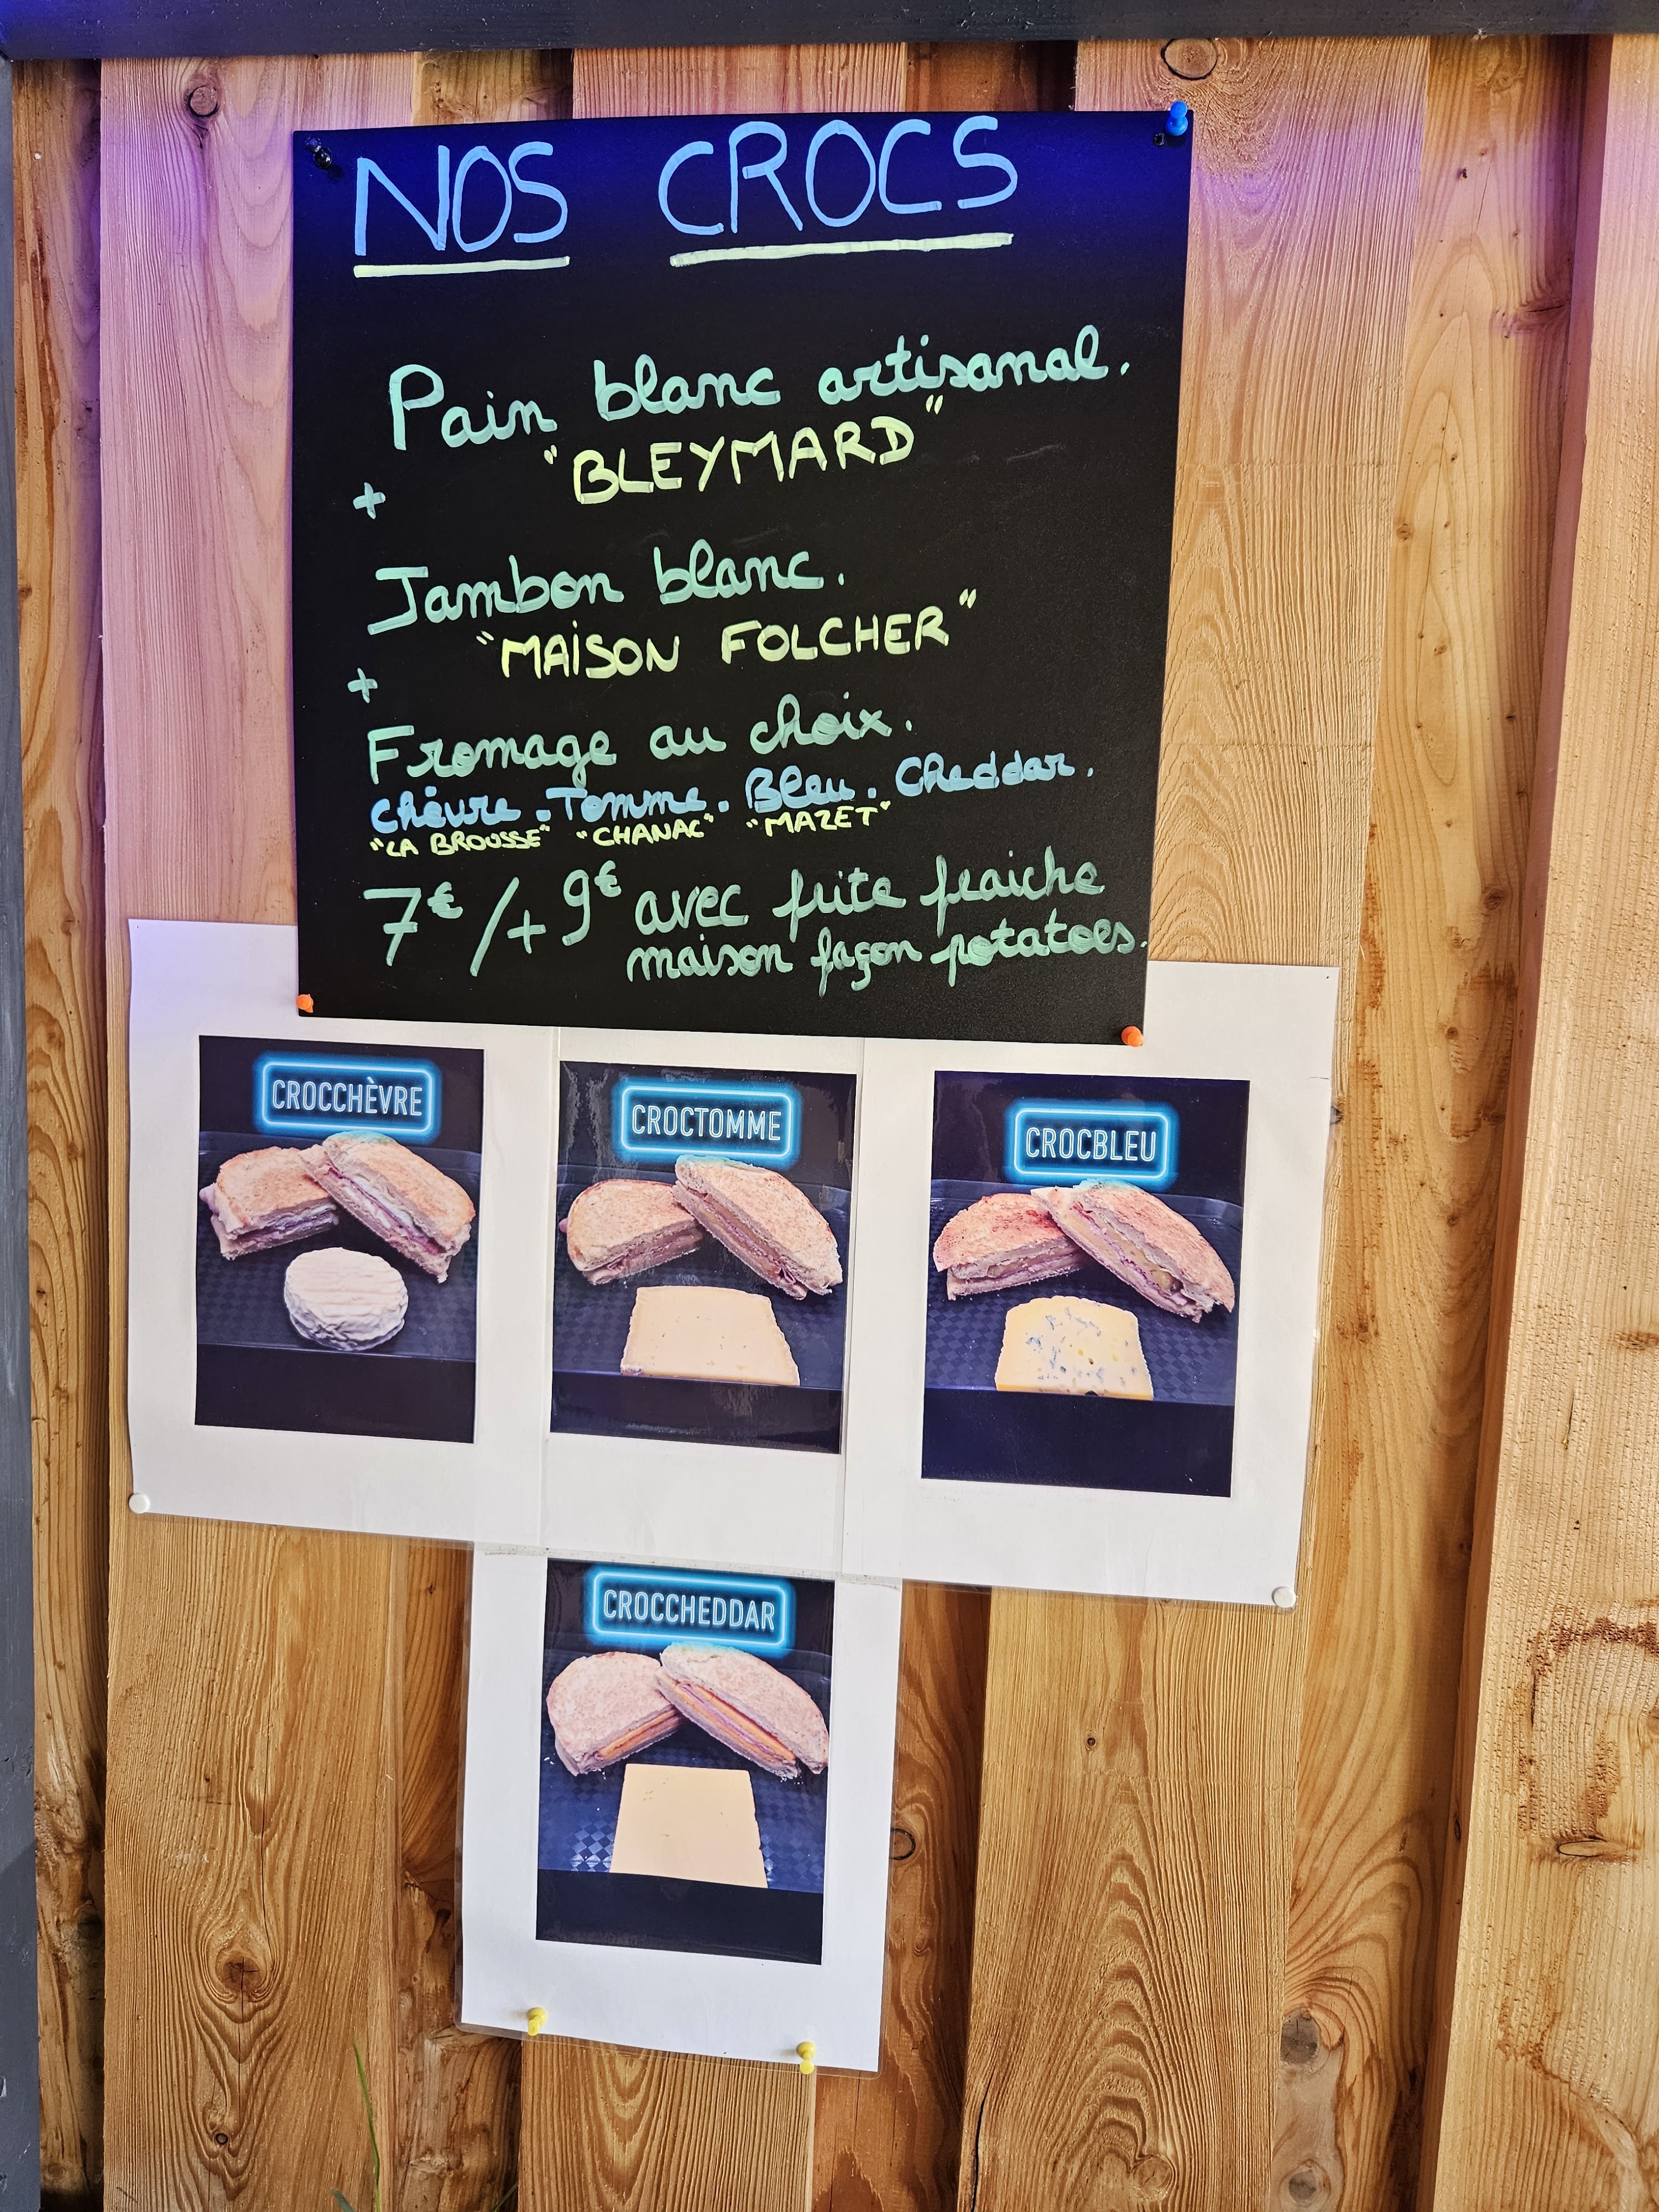 NOS CROCS
Pain blanc artisanal.
"BLEYMARD"
+
Jambon blanc.
"MAISON FOLCHER"
+
Fromage au choix.
chèvre. Tomme. Bleu. Cheddar.
"LA BROUSSE" "CHANAC" "MAZET"
7€ /+ 9€ avec frite fraiche
maison façon potatoes.
CROCCHÈVRE
CROCTOMME
CROCBLEU
CROCCHEDDAR